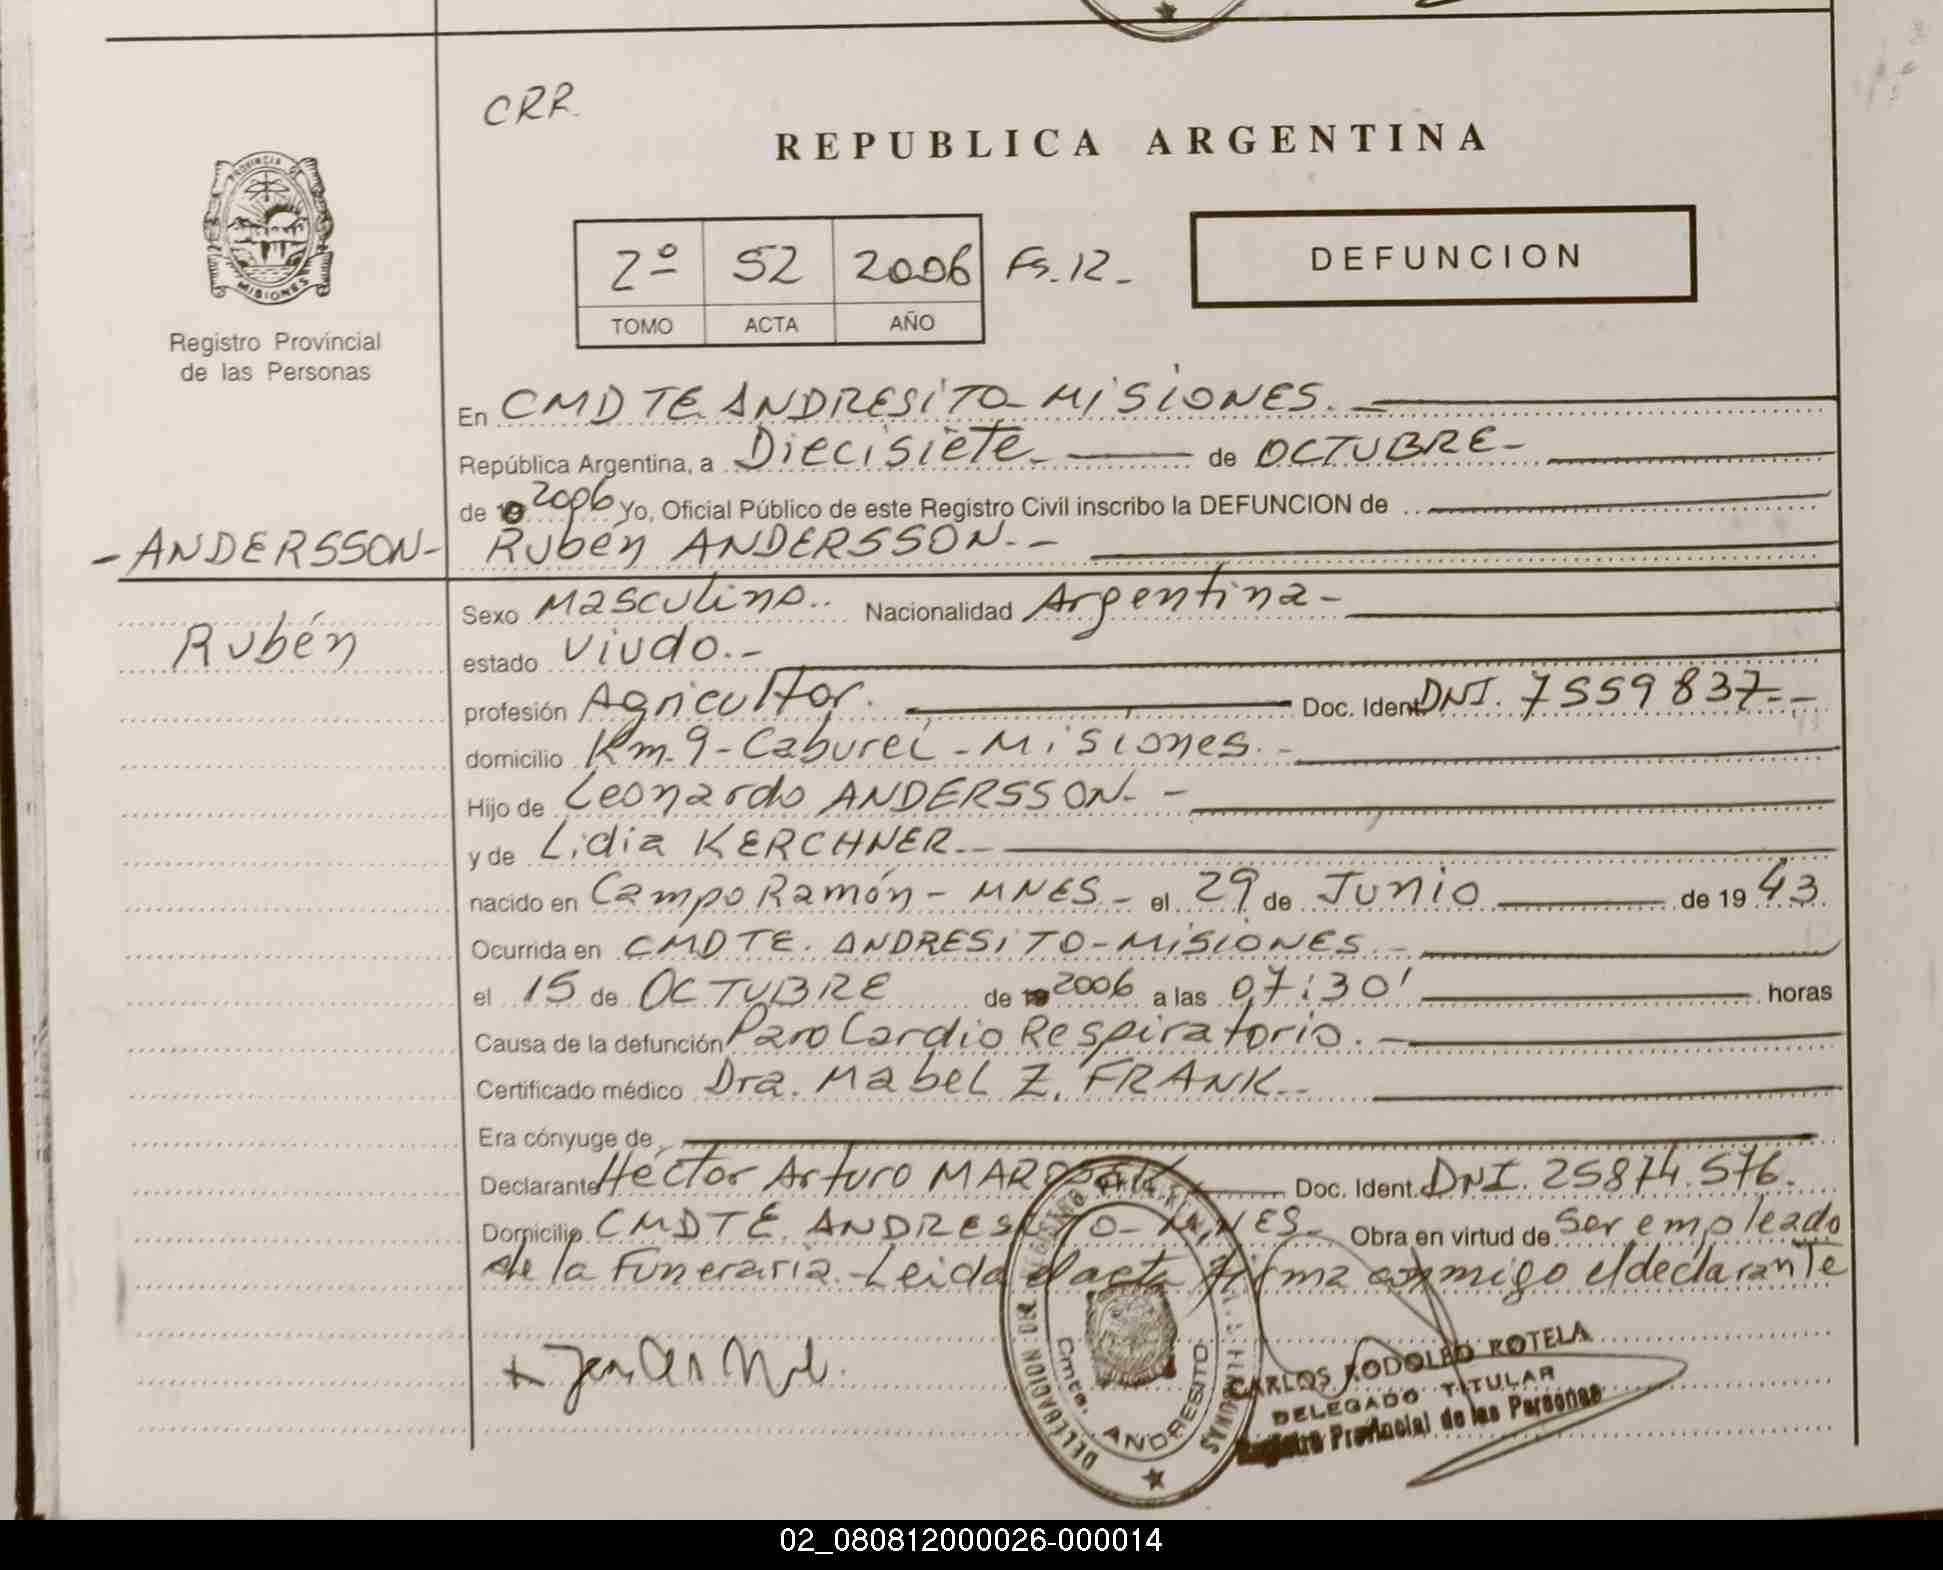 CRR.
REPUBLICA ARGENTINA
PROVINCIA DE MISIONES
Registro Provincial
de las Personas
2º 52 2006 Fs. 12.-
TOMO ACTA AÑO
DEFUNCION
En CMDTE. ANDRESITO - MISIONES.-
República Argentina, a Diecisiete.- de OCTUBRE-
de 19 2006 Yo, Oficial Público de este Registro Civil inscribo la DEFUNCION de
-ANDERSSON- Rubén ANDERSSON.-
Rubén
Sexo Masculino.. Nacionalidad Argentina-
estado Viudo.-
profesión Agricultor. Doc. Ident. DNI. 7559837.-
domicilio Km. 9 - Caburei - Misiones.-
Hijo de Leonardo ANDERSSON.-
y de Lidia KERCHNER.-
nacido en Campo Ramón - MNES.- el 29 de Junio de 19 43.
Ocurrida en CMDTE. ANDRESITO - MISIONES.-
el 15 de OCTUBRE de 19 2006 a las 07:30' horas
Causa de la defunción Paro Cardio Respiratorio.-
Certificado médico Dra. Mabel Z. FRANK.-
Era cónyuge de
Declarante Héctor Arturo Doc. Ident. DNI. 25874.576.
Domicilio CMDTE. ANDRESITO - MNES.- Obra en virtud de ser empleado
de la Funeraria.- Leida el acta firma conmigo el declarante
DELEGACION DEL REGISTRO
Cmte. ANDRESITO
CARLOS RODOLFO ROTELA
DELEGADO TITULAR
Registro Provincial de las Personas
02_080812000026-000014